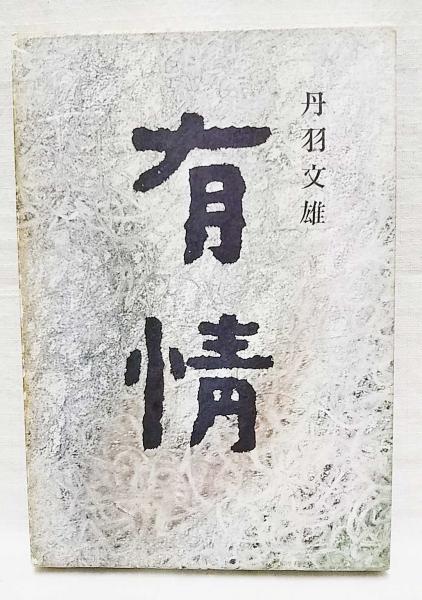 丹羽文雄
有情